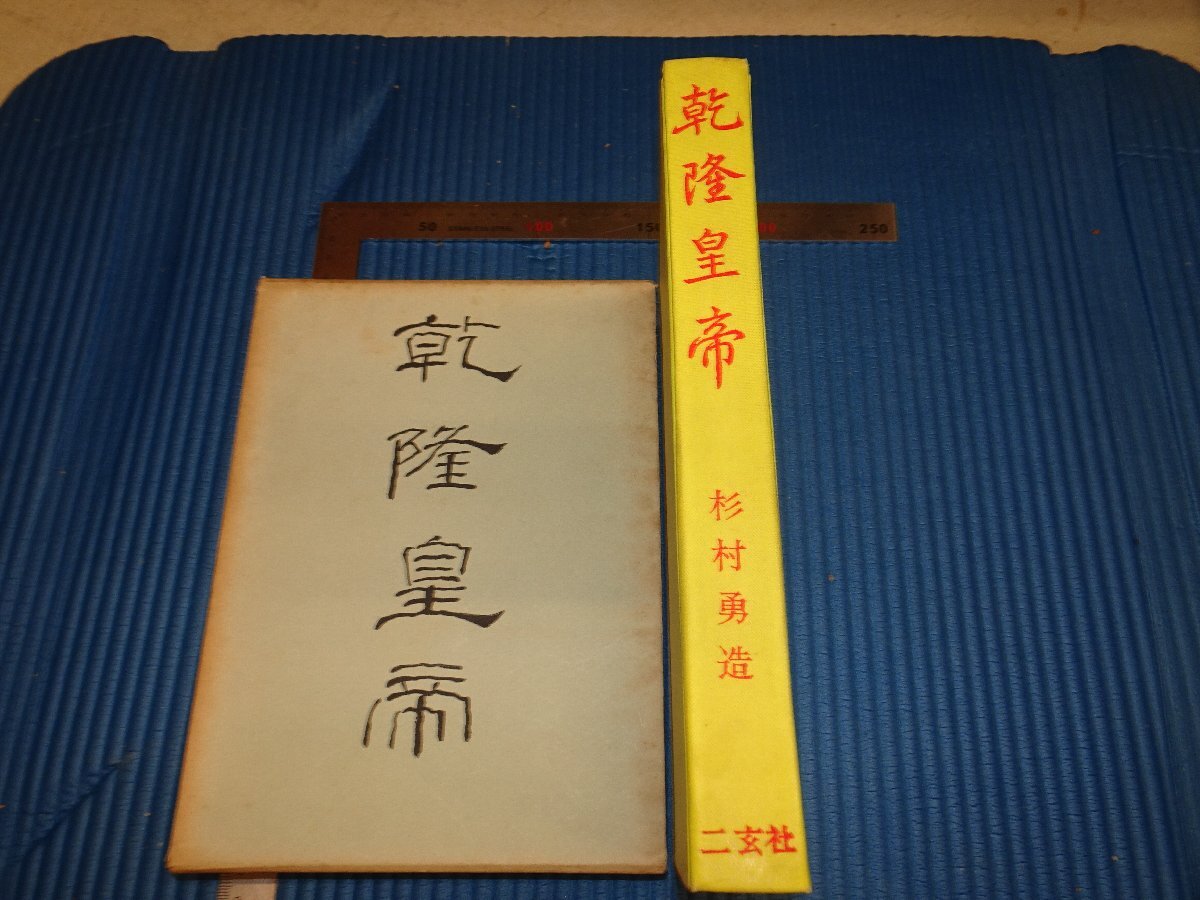 50 STAINLESS STEEL 100 150 200 250
乾隆皇帝
乾隆皇帝
杉村勇造
二玄社